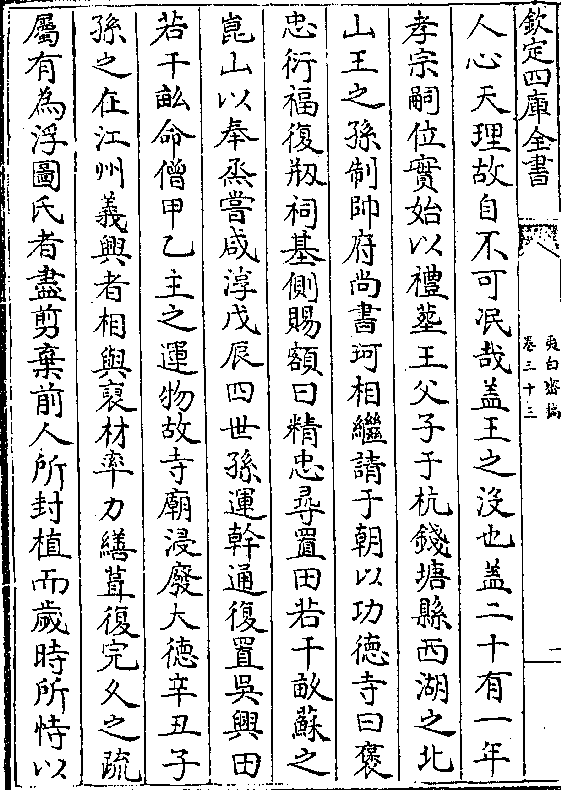 欽定四庫全書
夷白齋稿
卷三十三
人心天理故自不可冺哉盖王之沒也盖二十有一年
孝宗嗣位實始以禮塟王父子于杭錢塘縣西湖之北
山王之孫制帥府尚書珂相繼請于朝以功德寺曰褒
忠衍福復剏祠基側賜額曰精忠尋置田若干畝蘇之
崑山以奉烝嘗咸淳戊辰四世孫運幹通復置吳興田
若干畝命僧甲乙主之運物故寺廟浸廢大德辛丑子
孫之在江州義興者相與裒材率力繕葺復完久之疏
屬有為浮圖氏者盡剪棄前人所封植而歲時所恃以